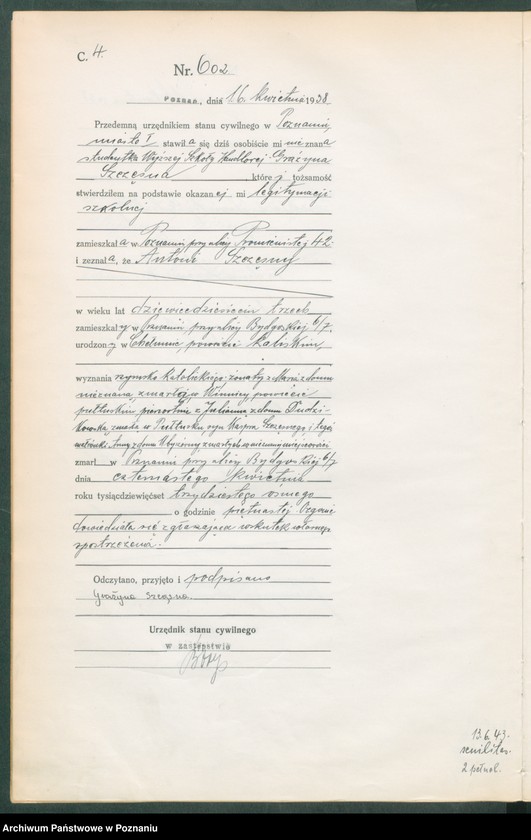 C. 4.
Nr. 602
POZNAŃ, dnia 16. kwietnia 1938
Przedemną urzędnikiem stanu cywilnego w Poznaniu,
miasto I stawiła się dziś osobiście mi nieznana
studentka Wyższej Szkoły Handlowej Grażyna
Szczęsna, której tożsamość
stwierdziłem na podstawie okazanej mi legitymacji
szkolnej
zamieszkała w Poznaniu przy ulicy Promienistej 42
i zeznała, że Antoni Szczęsny
w wieku lat dziewięćdziesięciu trzech
zamieszkały w Poznaniu przy ulicy Bydgoskiej 6/7,
urodzony w Chełmnie, powiecie kaliskim,
wyznania rzymsko katolickiego, żonaty z Marią z domu
nieznaną, zmarłą w Winnicy, powiecie
pułtuskim powtórnie z Julianną z domu
zmarłą w Pułtusku, syn Szczęsnego i tegoż
małżonki Anny z domu zmarłych
zmarł w Poznaniu przy ulicy Bydgoskiej 6/7
dnia czternastego kwietnia
roku tysiącdziewięćset trzydziestego ósmego
o godzinie piętnastej.
dowiedziała się zgłaszająca wskutek własnego
spostrzeżenia.
Odczytano, przyjęto i podpisano
Grażyna Szczęsna.
Urzędnik stanu cywilnego
w zastępstwie
13.6.43.
2 pełnol.
Archiwum Państwowe w Poznaniu